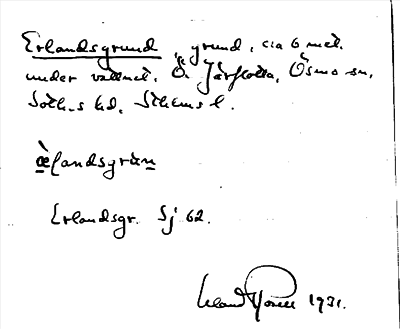 Erlandsgrund, grund, cia 6 met.
under vattnet. Ö. Järflotta, Ösmo sn,
Soth-s hd, Sthlms l.
æ̀landsgrun
Erlandsgr. Sj 62.
1931.